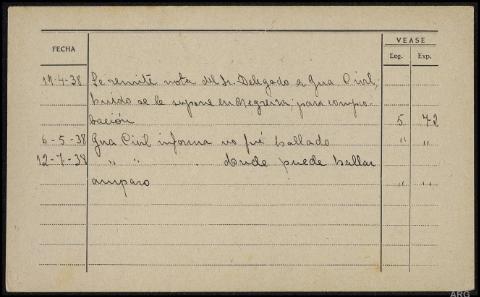 VEASE
FECHA Leg. Exp.
19-4-38 Se remite nota del Sr. Delegado a Gua Civil,
huido se le supone en para compro-
bación 5 72
6-5-38 Gua Civil informa no fué hallado " "
12-7-38 " " . donde puede hallar
amparo " "
ARG